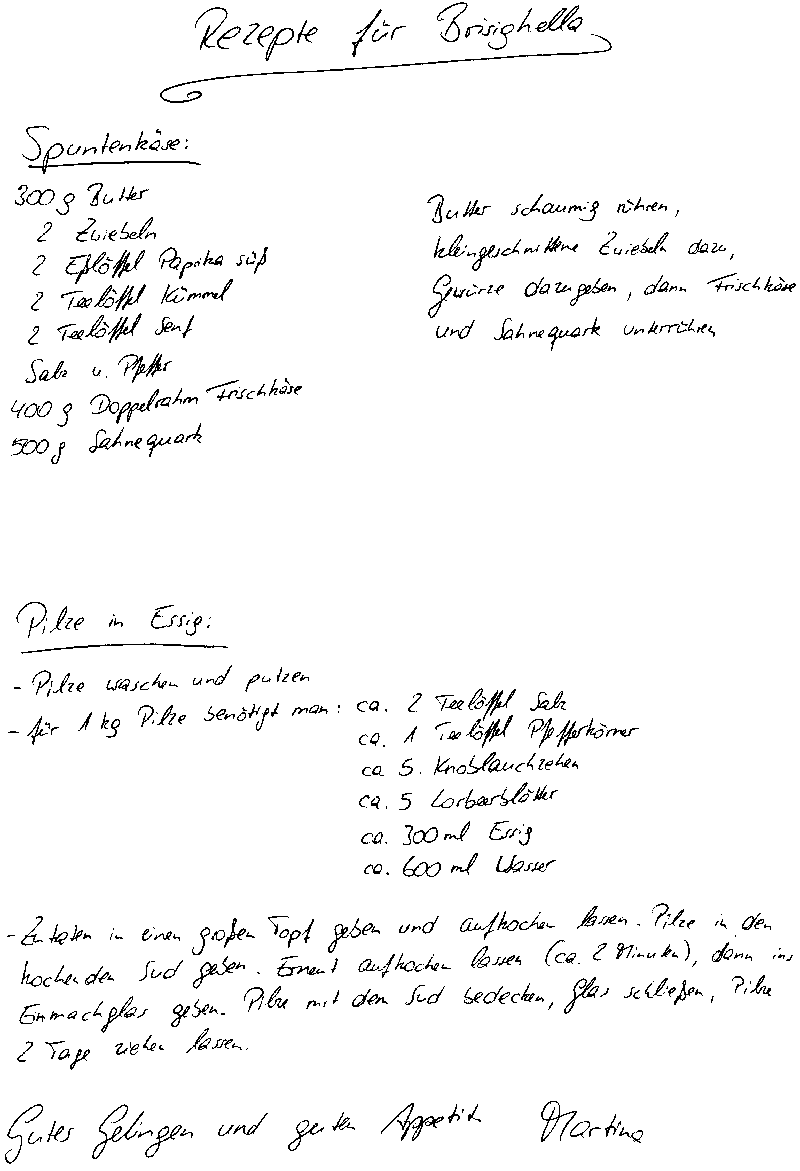 Rezepte für Brisighella
Spuntenkäse:
300 g Butter
2 Zwiebeln
2 Eßlöffel Paprika süß
2 Teelöffel Kümmel
2 Teelöffel Senf
Salz u. Pfeffer
400 g Doppelrahm Frischkäse
500 g Sahnequark
Butter schaumig rühren,
kleingeschnittene Zwiebeln dazu,
Gewürze dazugeben, dann Frischkäse
und Sahnequark unterrühren
Pilze in Essig:
- Pilze waschen und putzen
- für 1 kg Pilze benötigt man: ca. 2 Teelöffel Salz
ca. 1 Teelöffel Pfefferkörner
ca 5. Knoblauchzehen
ca. 5 Lorbeerblätter
ca. 300 ml Essig
ca. 600 ml Wasser
- Zutaten in einen großen Topf geben und aufkochen lassen. Pilze in den
kochenden Sud geben. Erneut aufkochen lassen (ca. 2 Minuten), dann ins
Einmachglas geben. Pilze mit dem Sud bedecken, Glas schließen, Pilze
2 Tage ziehen lassen.
Gutes Gelingen und guten Appetit Martina